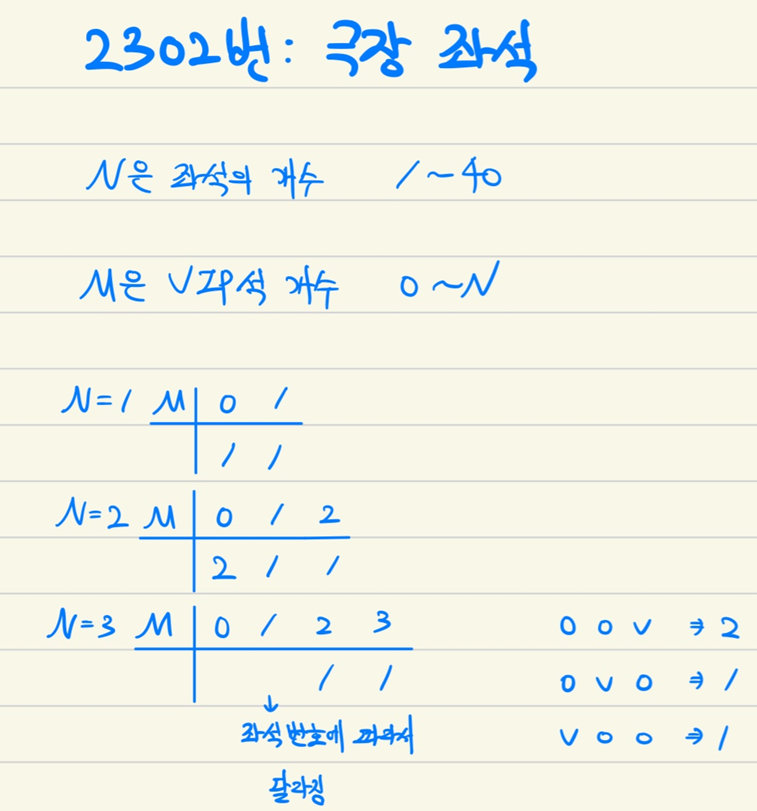 2302번: 극장 좌석
N은 좌석의 개수 1~40
M은 VIP석 개수 0~N
N=1 M 0 1
1 1
N=2 M 0 1 2
2 1 1
N=3 M 0 1 2 3
1 1
↓
좌석 번호에 따라서
달라짐
0 0 v ⇒ 2
0 v 0 ⇒ 1
v 0 0 ⇒ 1